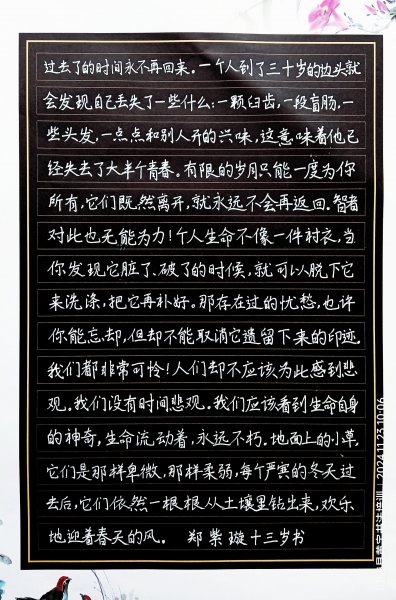 过去了的时间永不再回来。一个人到了三十岁的边头就
会发现自己丢失了一些什么:一颗臼齿,一段盲肠,一
些头发,一点点和别人开的兴味,这意味着他已
经失去了大半个青春。有限的岁月只能一度为你
所有,它们既然离开,就永远不会再返回。智者
对此也无能为力!个人生命不像一件衬衣,当
你发现它脏了、破了的时候,就可以脱下它
来洗涤,把它再补好。那存在过的忧愁,也许
你能忘却,但却不能取消它遗留下来的印迹。
我们都非常可怜!人们却不应该为此感到悲
观。我们没有时间悲观。我们应该看到生命自身
的神奇,生命流动着,永远不朽。地面上的小草,
它们是那样卑微,那样柔弱,每个严寒的冬天过
去后,它们依然一根根从土壤里钻出来,欢乐
地迎着春天的风。 郑紫璇十三岁书
2024.11.23 10:06